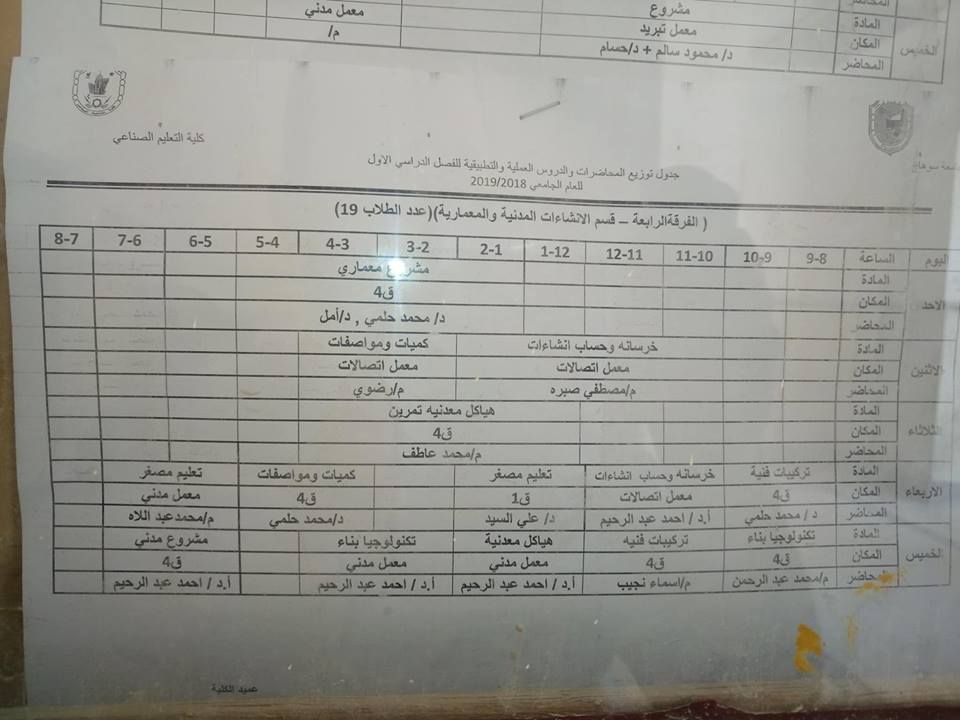 المحاضر
مشروع
معمل مدني
الخميس
المادة
معمل تبريد
المكان
د/ محمود سالم + د/حسام
م/
المحاضر
كلية التعليم الصناعي
جدول توزيع المحاضرات والدروس العملية والتطبيقية للفصل الدراسي الاول
للعام الجامعي 2019/2018
( الفرقةالرابعة – قسم الانشاءات المدنية والمعمارية)(عدد الطلاب 19)
اليوم الساعة 9-8 10-9 11-10 12-11 1-12 2-1 3-2 4-3 5-4 6-5 7-6 8-7
الاحد المادة مشروع معماري
المكان ق4
المحاضر د/ محمد حلمي , د/أمل
الاثنين المادة خرسانه وحساب انشاءات كميات ومواصفات
المكان معمل اتصالات معمل اتصالات
المحاضر م/مصطفي صبره م/رضوي
الثلاثاء المادة هياكل معدنيه تمرين
المكان ق4
المحاضر م/محمد عاطف
الاربعاء المادة تركيبات فنية خرسانه وحساب انشاءات تعليم مصغر كميات ومواصفات تعليم مصغر
المكان ق4 معمل اتصالات ق1 ق4 معمل مدني
المحاضر د/ محمد حلمي أ.د / احمد عبد الرحيم د/ علي السيد د/محمد حلمي م/محمدعبد اللاه
الخميس المادة تكنولوجيا بناء تركيبات فنيه هياكل معدنية تكنولوجيا بناء مشروع مدني
المكان ق4 ق4 معمل مدني معمل مدني ق4
المحاضر م/محمد عبد الرحمن م/اسماء نجيب أ.د / احمد عبد الرحيم أ.د / احمد عبد الرحيم أ.د / احمد عبد الرحيم
عميد الكلية